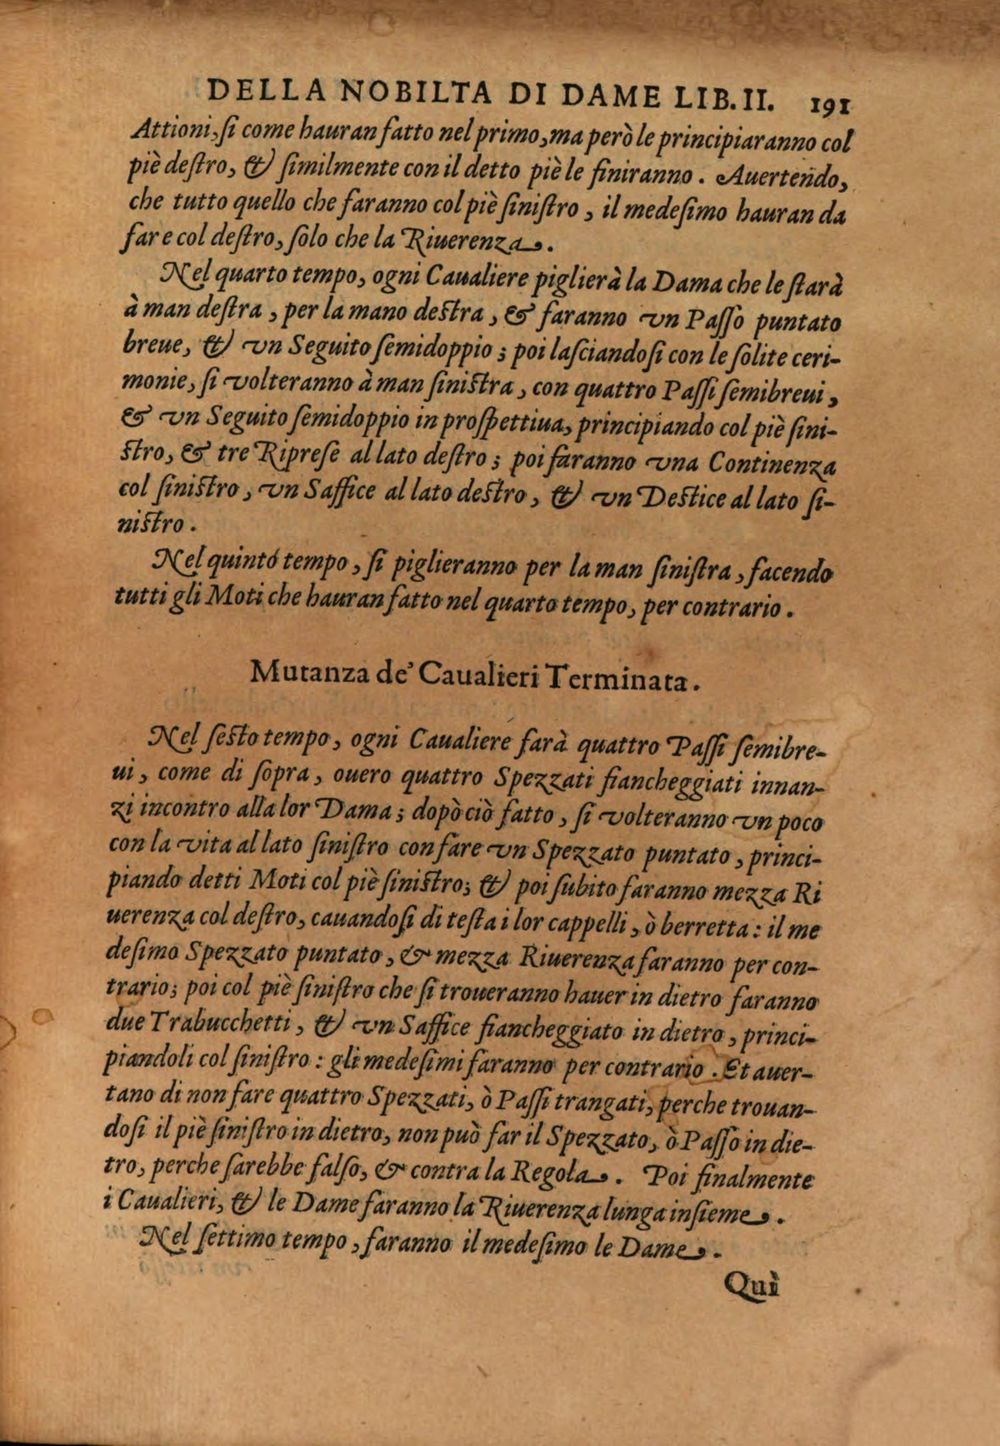 DELLA NOBILTA DI DAME LIB. II. 191
Attioni, ſi come hauran fatto nel primo, ma però le principiaranno col
piè deſtro, & ſimilmente con il detto piè le finiranno. Auertendo,
che tutto quello che faranno col piè ſiniſtro, il medeſimo hauran da
fare col deſtro, ſolo che la Riuerenza.
Nel quarto tempo, ogni Caualiere piglierà la Dama che le ſtarà
à man deſtra, per la mano deſtra, & faranno vn Paſſo puntato
breue, & vn Seguito ſemidoppio; poi laſciandoſi con le ſolite ceri-
monie, ſi volteranno à man ſiniſtra, con quattro Paſſi ſemibreui,
& vn Seguito ſemidoppio in proſpettiua, principiando col piè ſini-
ſtro, & tre Ripreſe al lato deſtro; poi faranno vna Continenza
col ſiniſtro, vn Saffice al lato deſtro, & vn Deſtice al lato ſi-
niſtro.
Nel quintó tempo, ſi piglieranno per la man ſiniſtra, facendo
tutti gli Moti che hauran fatto nel quarto tempo, per contrario.
Mutanza de' Caualieri Terminata.
Nel ſeſto tempo, ogni Caualiere farà quattro Paſſi ſemibre-
ui, come di ſopra, ouero quattro Spezzati fiancheggiati innan-
zi incontro alla lor Dama; dopò ciò fatto, ſi volteranno vn poco
con la vita al lato ſiniſtro con fare vn Spezzato puntato, princi-
piando detti Moti col piè ſiniſtro; & poi ſubito faranno mezza Ri
uerenza col deſtro, cauandoſi di teſta i lor cappelli, ò berretta: il me
deſimo Spezzato puntato, & mezza Riuerenza faranno per con-
trario; poi col piè ſiniſtro che ſi troueranno hauer in dietro faranno
due Trabucchetti, & vn Saffice fiancheggiato in dietro, princi-
piandoli col ſiniſtro: gli medeſimi faranno per contrario. Et auer-
tano di non fare quattro Spezzati, ò Paſſi trangati, perche trouan-
doſi il piè ſiniſtro in dietro, non può far il Spezzato, ò Paſſo in die-
tro, perche ſarebbe falſo, & contra la Regola. Poi finalmente
i Caualieri, & le Dame faranno la Riuerenza lunga inſieme.
Nel ſettimo tempo, faranno il medeſimo le Dame.
Quì